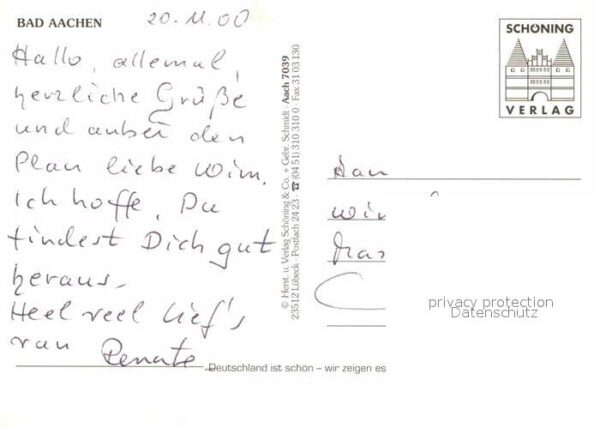 BAD AACHEN
20.11.00
Hallo, allemal,
herzliche Grüße
und anbei den
Plan liebe Wim.
Ich hoffe, Du
findest Dich gut
heraus.
Heel veel lief's
van Renate
© Herst. u. Verlag Schöning & Co. + Gebr. Schmidt · Aach 7039
23512 Lübeck · Postfach 24 23 · ☎ (04 51) 310 310 0 Fax 31 03 130
SCHÖNING
VERLAG
privacy protection
Datenschutz
Deutschland ist schön – wir zeigen es